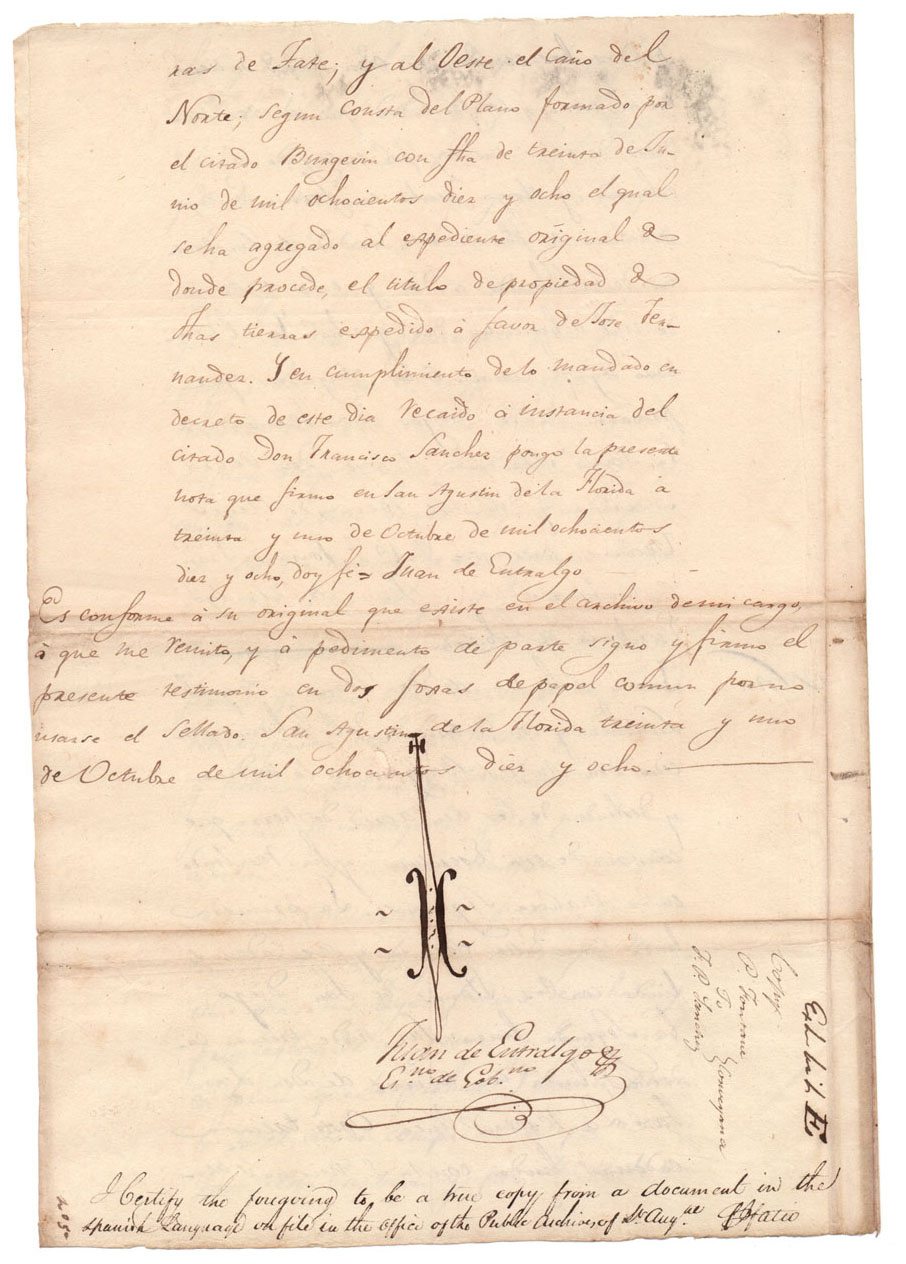 ras de Fate; y al Oeste el Caño del
Norte; segun Consta del Plano formado por
el citado Burgevin con fha de treinta de Ju-
nio de mil ochocientos diez y ocho el qual
se ha agregado al expediente original de
donde procede, el titulo de propiedad de
dhas tierras expedido á favor de Jose Fer-
nandez. Y en cumplimiento de lo mandado en
decreto de este dia recaido á instancia del
citado Don Francisco Sanchez pongo la presente
nota que firmo en San Agustin de la Florida á
treinta y uno de Octubre de mil ochocientos
diez y ocho, doy fé = Juan de Entralgo
Es conforme á su original que existe en el archivo de mi cargo,
á que me remito, y á pedimento de parte signo y firmo el
presente testimonio en dos foxas de papel comun por no
usarse el Sellado. San Agustin de la Florida treinta y uno
de Octubre de mil ochocientos diez y ocho.
Juan de Entralgo
Esno de Gobno
I Certify the foregoing to be a true copy from a document in the
Spanish Language on file in the office of the Public Archives of St Augne
Copy
P. Fontane
To
F. R. Sanchez
Conveyance
Exhibit E